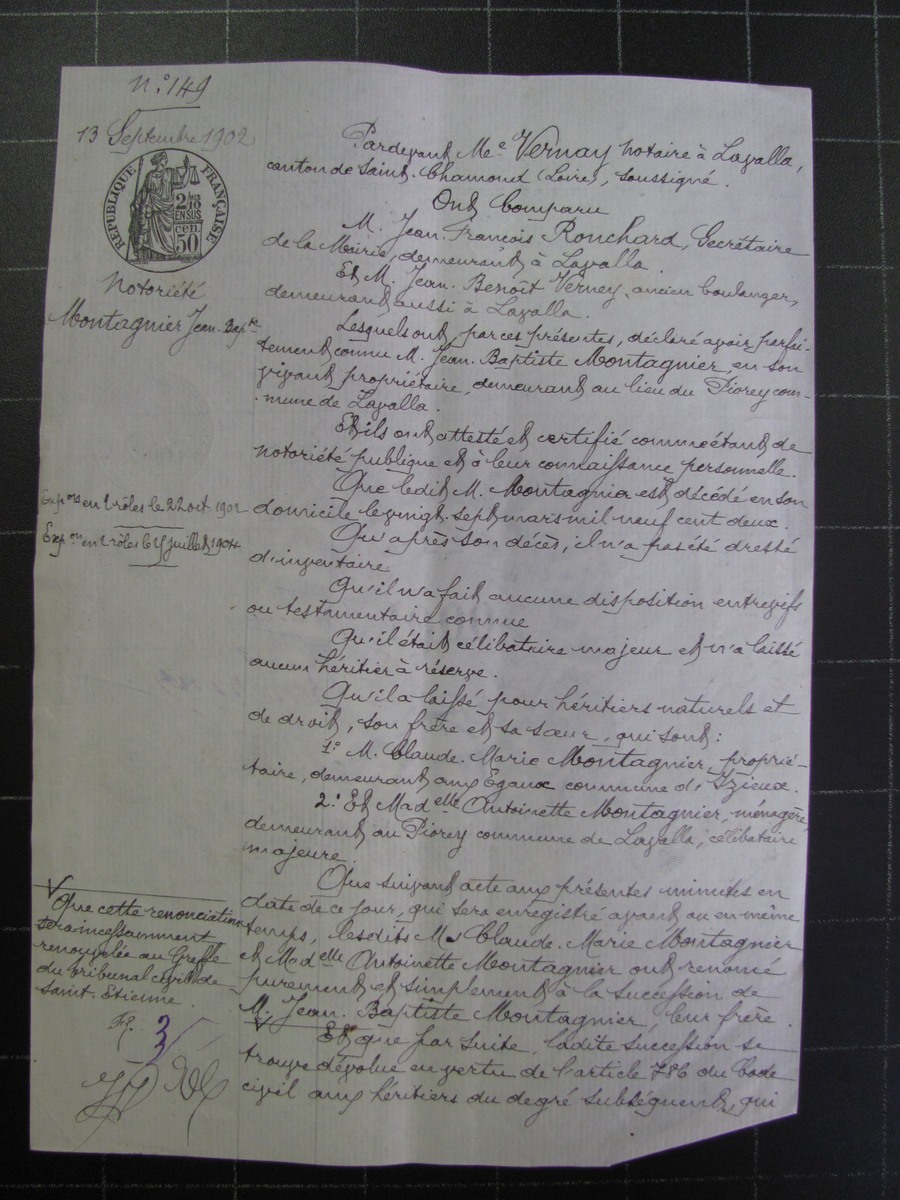 N.° 149
13 Septembre 1902
RÉPUBLIQUE FRANÇAISE
2/10 EN SUS
50 cen.
Notoriété
Montagnier Jean. Bapte
Expon en 2 rôles le 22 oct 1902
Expon en 2 rôles le 15 juillet 1904
Pardevant Me. Vernay notaire à Lavalla,
canton de Saint. Chamond (Loire), soussigné.
Ont Comparu
M. Jean. François Ronchard, Secrétaire
de la Mairie, demeurant à Lavalla.
Et M. Jean. Benoît Verney, ancien boulanger,
demeurant aussi à Lavalla.
Lesquels ont, par ces présentes, déclaré avoir parfai-
tement connu M. Jean. Baptiste Montagnier, en son
vivant propriétaire, demeurant au lieu du Piorey com-
mune de Lavalla.
Et ils ont attesté et certifié comme étant de
notoriété publique et à leur connaissance personnelle.
Que ledit M. Montagnier est décédé en son
domicile le vingt. sept mars mil neuf cent deux.
Qu'après son décès, il n'a pas été dressé
d'inventaire
Qu'il n'a fait aucune disposition entrevifs
ou testamentaire connue
Qu'il était célibataire majeur et n'a laissé
aucun héritier à réserve.
Qu'il a laissé pour héritiers naturels et
de droit, son frère et sa sœur, qui sont:
1° M. Claude. Marie Montagnier, proprié-
taire, demeurant aux Egaux commune d'Izieux.
2.° Et Madelle Antoinette Montagnier, ménagère,
demeurant au Piorey commune de Lavalla, célibataire
majeure.
Que suivant acte aux présentes minutes en
date de ce jour, qui sera enregistré avant ou en même
temps, lesdits M. Claude. Marie Montagnier
et Madelle Antoinette Montagnier ont renoncé
purement et simplement à la succession de
M. Jean. Baptiste Montagnier, leur frère.
Et que par suite, ladite succession se
trouve dévolue en vertu de l'article 786 du Code
civil aux héritiers du degré subséquent, qui
Que cette renonciation
sera incessamment
renouvelée au Greffe
du tribunal civil de
Saint. Etienne.